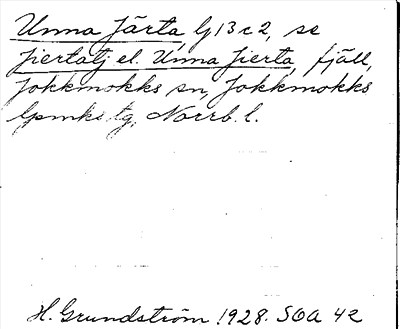 Unna Järta, lj 13 c 2, se
Jiertatj el. Unna Jierta, fjäll,
Jokkmokks sn, Jokkmokks
lpmks tg, Norrb. l.
H. Grundström 1928. SOA 42